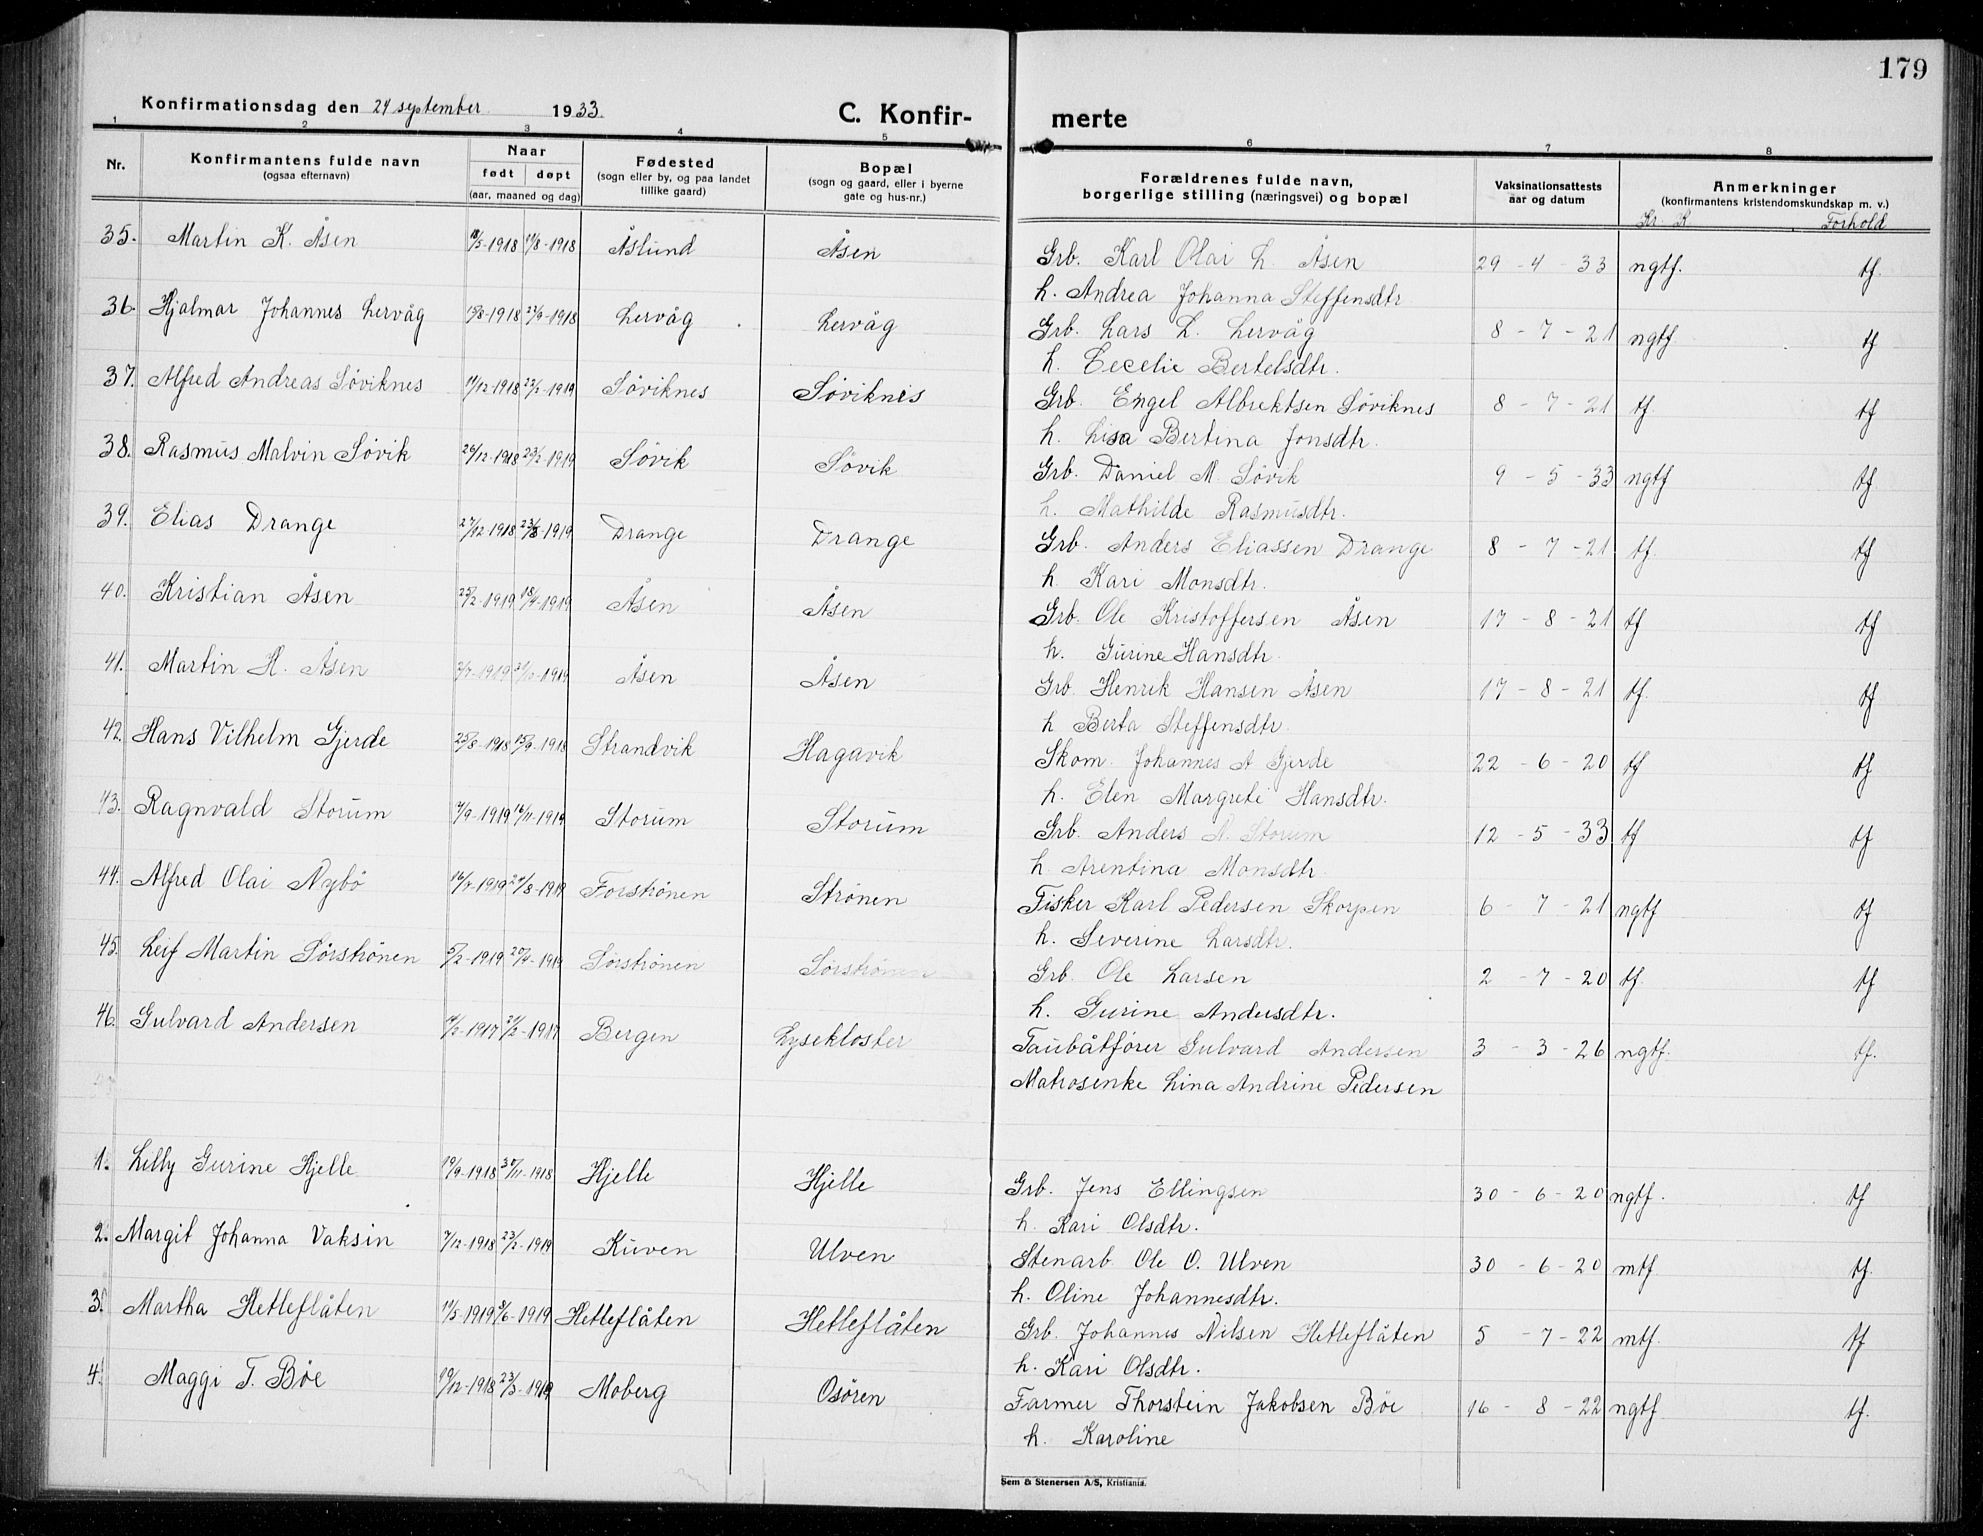 179
Konfirmationsdag den 24 september 1933. C. Konfir- merte
1 2 3 4 5 6 7 8
Nr. Konfirmantens fulde navn (ogsaa efternavn) Naar født døpt (aar, maaned og dag) Fødested (sogn eller by, og paa landet tillike gaard) Bopæl (sogn og gaard, eller i byerne gate og hus-nr.) Forældrenes fulde navn, borgerlige stilling (næringsvei) og bopæl Vaksinationsattests aar og datum Anmerkninger (konfirmantens kristendomskundskap m. v.)
Kr. K. Forhold
35. Martin K. Åsen 18/5-1918 11/8-1918 Åslund Åsen Grb. Karl Olai L. Åsen 29-4-33 ngtf. tf.
h. Andrea Johanna Steffensdtr
36. Hjalmar Johannes Lervåg 1918 1918 Lervåg Lervåg Grb. Lars L. Lervåg 8-7-21 ngtf tf
h. Cecelie Bertelsdtr.
37. Alfred Andreas Søviknes 11/12-1918 23/2-1919 Søviknes Søviknes Grb. Engel Albrektsen Søviknes 8-7-21 tf. tf
h. Lisa Bertina Jonsdtr.
38. Rasmus Malvin Søvik 26/12-1918 23/2-1919 Søvik Søvik Grb. Daniel M. Søvik 9-5-33 ngtf tf.
h. Mathilde Rasmusdtr.
39. Elias Drange 27/12-1918 23/3-1919 Drange Drange Grb. Anders Eliassen Drange 8-7-21 tf. tf
h. Kari Monsdtr.
40. Kristian Åsen 25/2-1919 18/4-1919 Åsen Åsen Grb. Ole Kristoffersen Åsen 17-8-21 tf tf
h. Gurine Hansdtr.
41. Martin H. Åsen 1919 1919 Åsen Åsen Grb. Henrik Hansen Åsen 17-8-21 tf. tf
h Berta Steffensdtr.
42. Hans Vilhelm Gjerde 25/8-1918 15/9-1918 Strandvik Hagavik Skom. Johannes A Gjerde 22-6-20 tf tf
h. Elen Margrete Hansdtr.
43. Ragnvald Storum 1919 16/11-1919 Storum Storum Grb. Anders A. Storum 12-5-33 tf tf
h. Arentina Monsdtr.
44. Alfred Olai Nybø 1919 24/8-1919 Forstrønen Strønen Fisker Karl Pedersen Skorpen 6-7-21 ngtf tf
h. Severine Larsdtr.
45. Leif Martin Sørstrønen 5/2-1919 20/4-1919 Sørstrønen Sørstrønen Grb. Ole Larsen 2-7-20 tf. tf
h. Gurine Andersdtr.
46. Gulvard Andersen 1917 1917 Bergen Lysekloster Taubåtfører Gulvard Andersen 3-3-26 ngtf. tf.
Matrosenke Lina Andrine Pedersen
1. Lelly Gurine Hjelle 19/9-1918 30/11-1918 Hjelle Hjelle Grb. Jens Ellingsen 30-6-20 ngtf. tf
h. Kari Olsdtr.
2. Margit Johanna Vaksin 7/12-1918 23/2-1919 Kuven Ulven Stenarb. Ole O. Ulven 30-6-20 mtf tf.
h. Oline Johannesdtr.
3. Martha Hetleflåten 11/5-1919 9/6-1919 Hetleflåten Hetleflåten Grb. Johannes Nilsen Hetleflåten 5-7-22 mtf. tf
h. Kari Olsdtr.
4. Maggi T. Bøe 19/12-1918 23/3-1919 Moberg Osøren Farmer Thorstein Jakobsen Bøe 16-8-22 ngtf tf.
h. Karoline
Sem & Stenersen A/S, Kristiania.